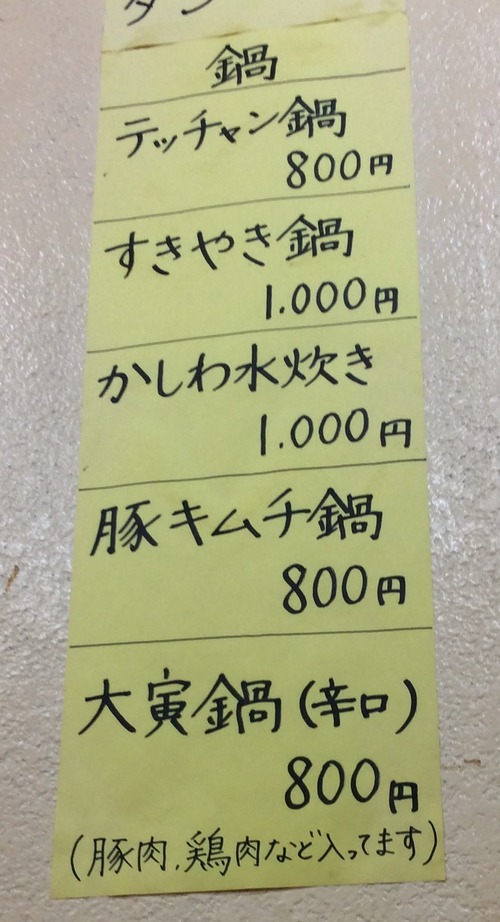 鍋
テッチャン鍋
800円
すきやき鍋
1.000円
かしわ水炊き
1.000円
豚キムチ鍋
800円
大寅鍋(辛口)
800円
(豚肉,鶏肉など入ってます)